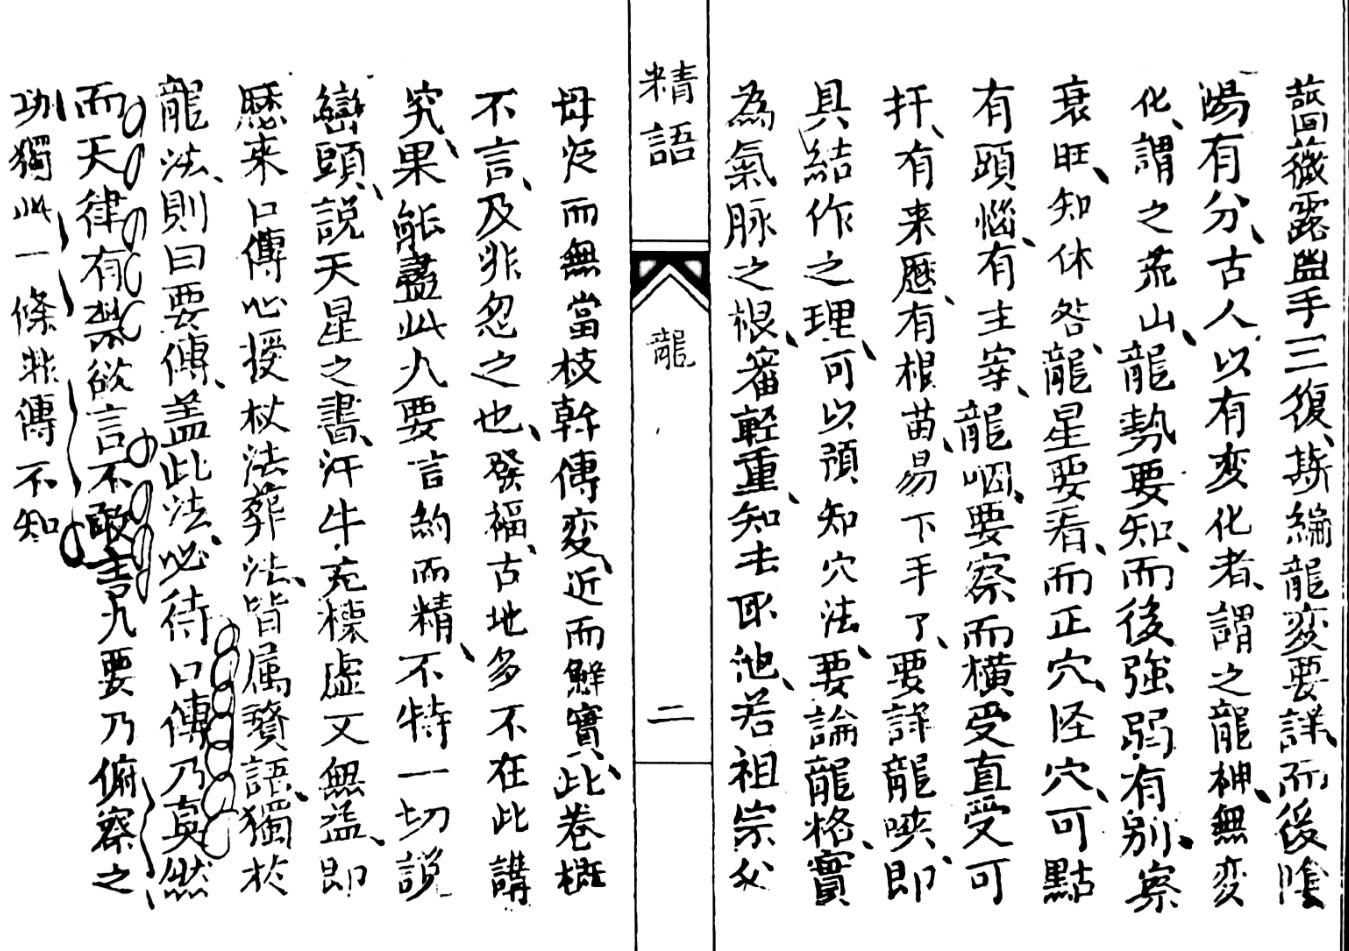 薔薇露盥手三復、斯編龍变要詳、而後陰
陽有分、古人以有变化者、謂之龍神、無变
化、謂之荒山、龍勢要知、而後強弱有别、察
衰旺、知休咎、龍星要看、而正穴、怪穴、可點
有頭惱、有主宰、龍咽、要察而橫受直受可
扦、有来歷、有根苗、易下手了、要詳龍峽、即
具結作之理、可以預知穴法、要論龍格、實
為氣脉之根、審輕重、知去取池、若祖宗父
精語
龍
二
母定而無當枝幹傳变、近而鮮實、此卷概
不言、及非忽之也、發福、古地多不在此講
究、果能盡此九要言約而精、不特一切説
巒頭、説天星之書、汗牛充棟虛文無益、即
歷来口傳心授杖法葬法、皆属贅語、獨於
龍法、則曰要傳、盖此法、必待口傳乃真然
而天律有禁欲言不敢書九要乃俯察之
功獨此一條非傳不知